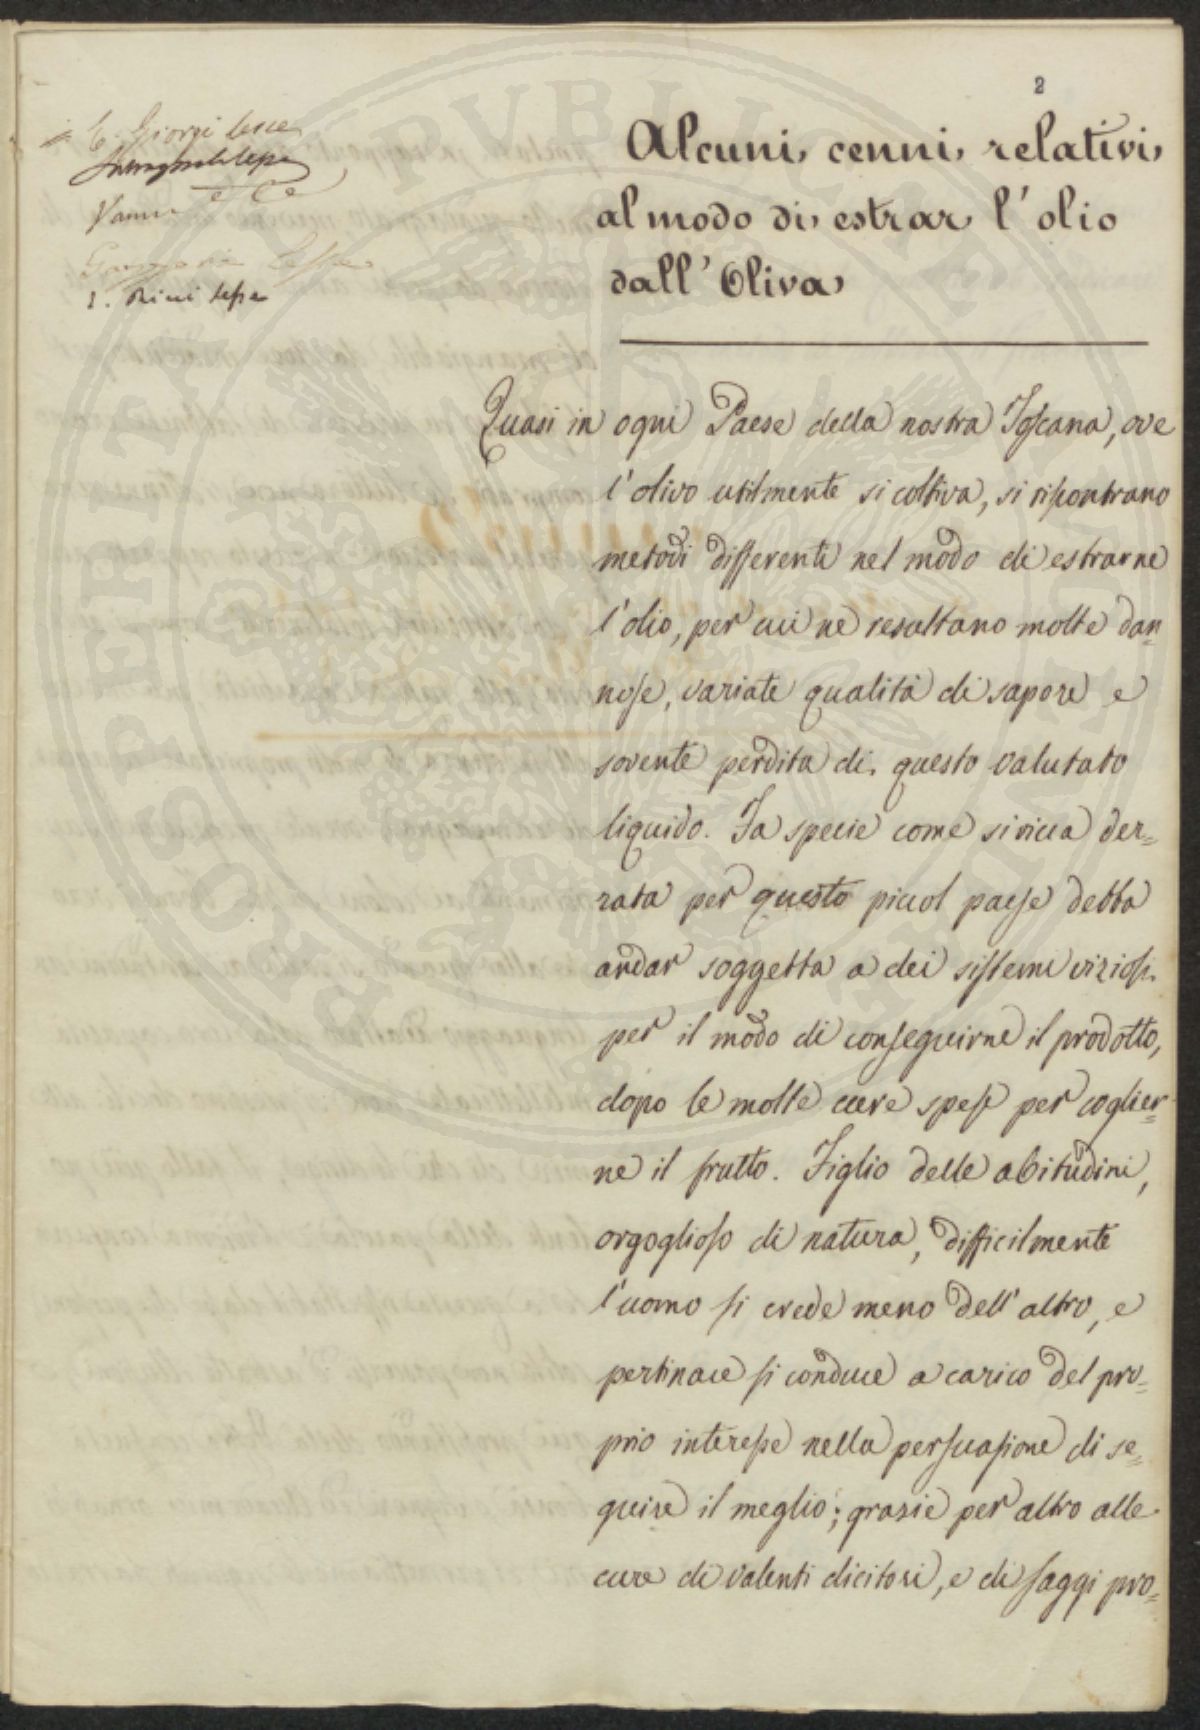 2
C. Giorgi lesse
Vannu
I. Rini lesse
Alcuni cenni relativi
al modo di estrar l'olio
dall'Oliva
Quasi in ogni Paese della nostra Toscana, ove
l'olivo utilmente si coltiva, si riscontrano
metodi differenti nel modo di estrarne
l'olio, per cui ne resultano molte dan=
nose, variate qualità di sapore e
sovente perdita di questo valutato
liquido. Fa specie come si ricca der=
rata per questo piccol paese debba
andar soggetta a dei sistemi viziosi
per il modo di conseguirne il prodotto,
dopo le molte cure spese per coglier=
ne il frutto. Figlio delle abitudini,
orgoglioso di natura, difficilmente
l'uomo si crede meno dell'altro, e
pertinace si conduce a carico del pro=
prio interesse nella persuasione di se=
guire il meglio; grazie per altro alle
cure di valenti dicitori, e di saggi pro=
PUBLICAE
PROSPERITATIS